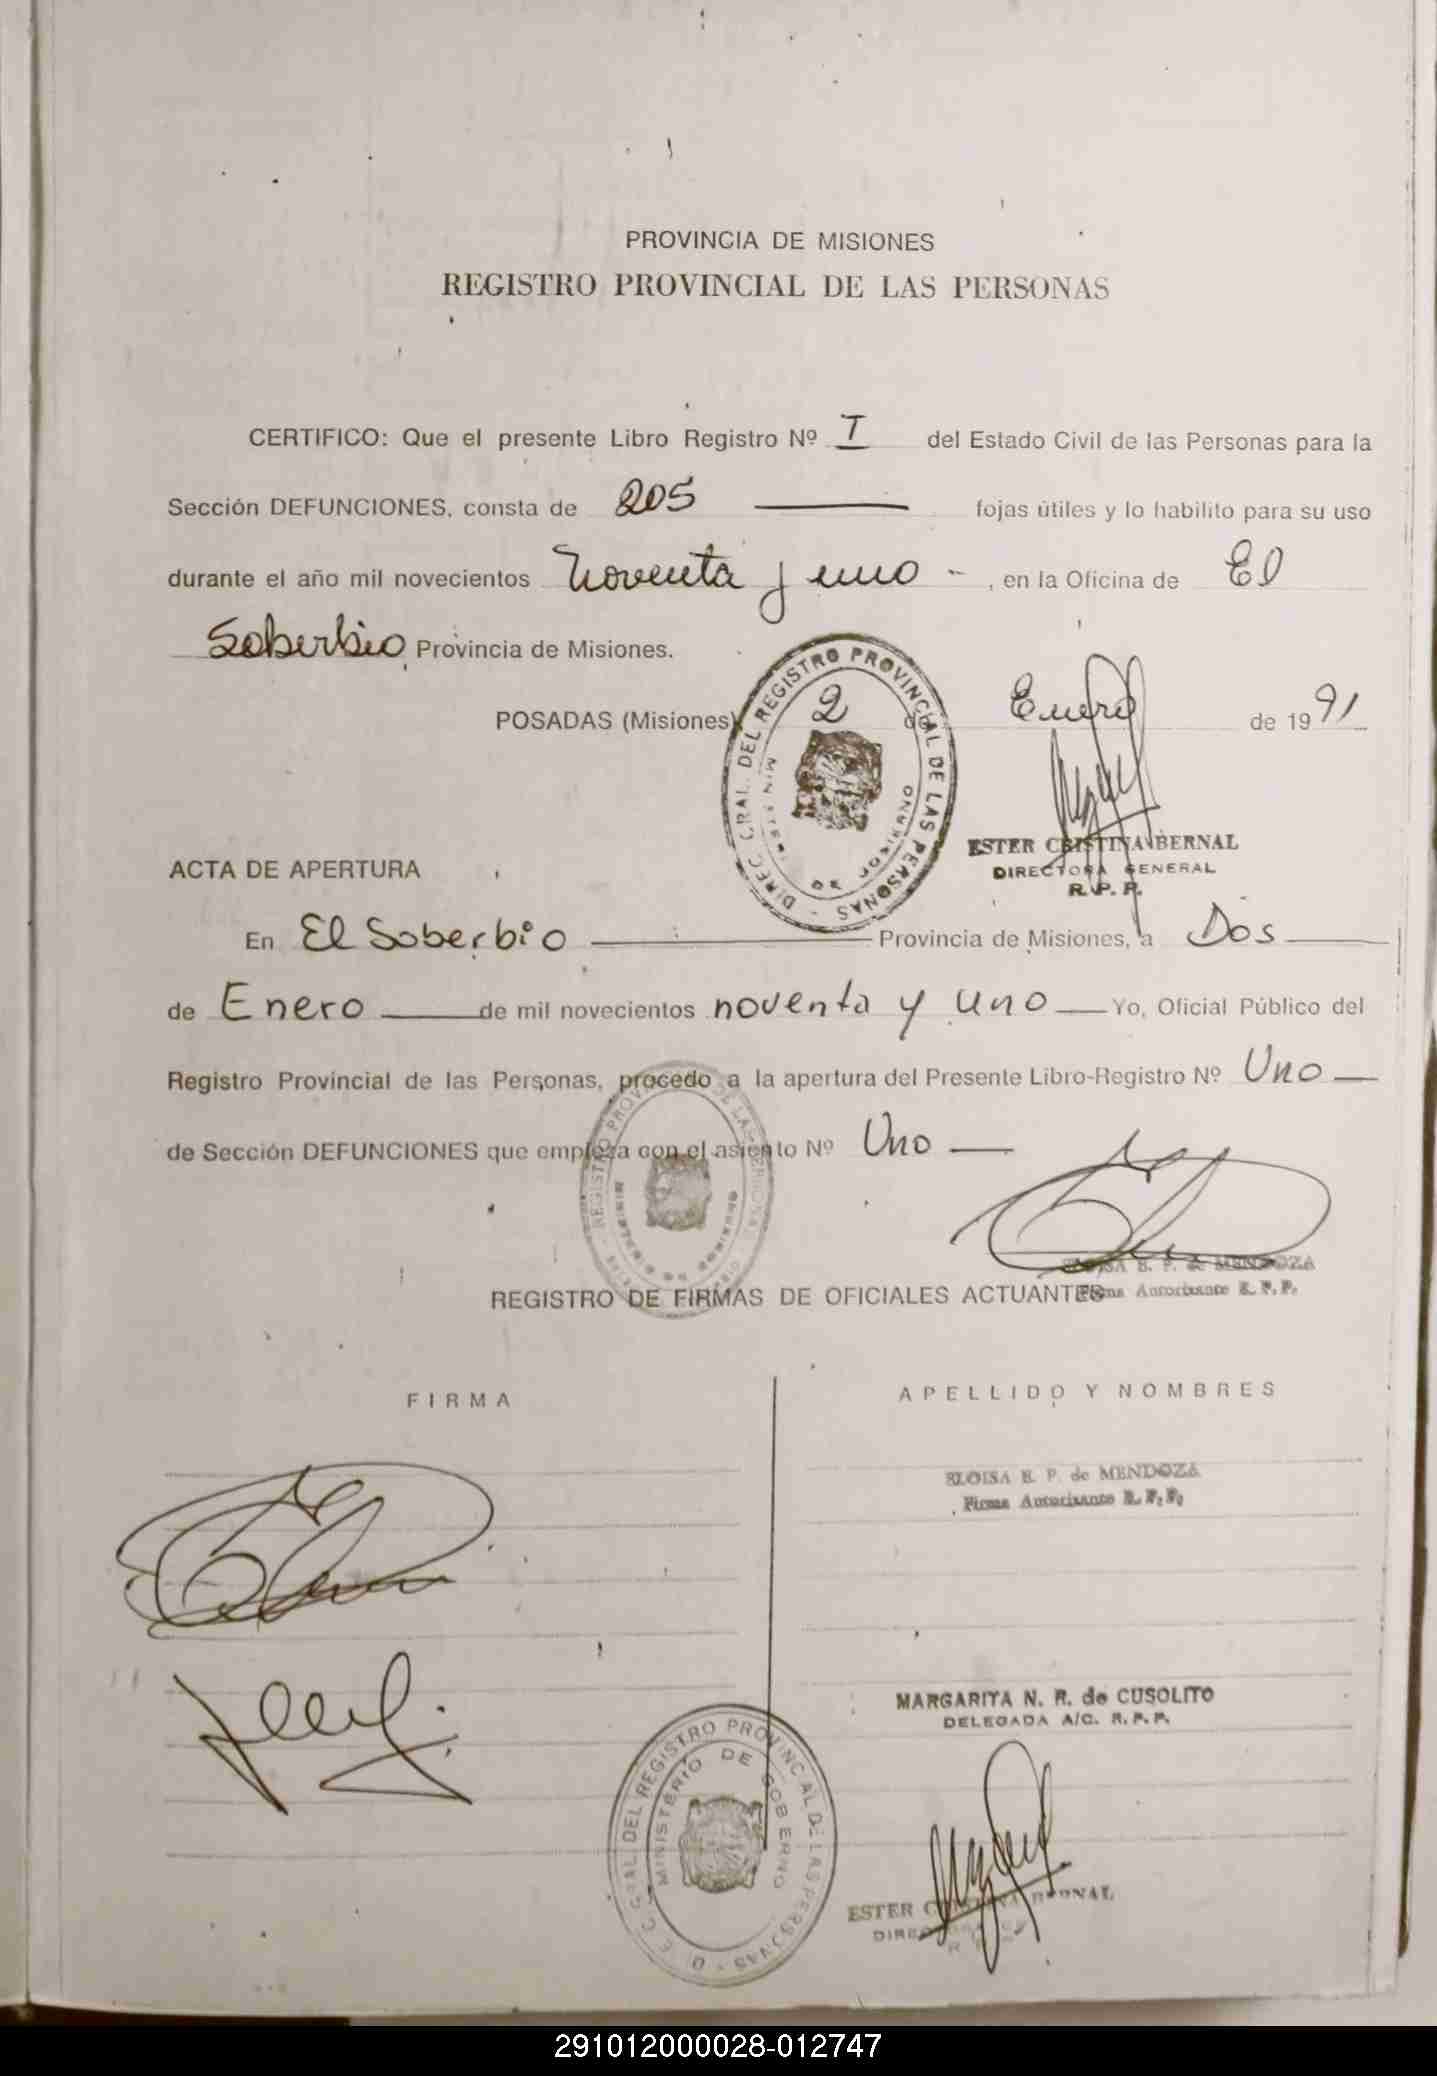 PROVINCIA DE MISIONES
REGISTRO PROVINCIAL DE LAS PERSONAS
CERTIFICO: Que el presente Libro Registro Nº I del Estado Civil de las Personas para la
Sección DEFUNCIONES, consta de 205 fojas útiles y lo habilito para su uso
durante el año mil novecientos Noventa y uno - , en la Oficina de El
Soberbio Provincia de Misiones.
POSADAS (Misiones) 2 de Enero de 1991
DIREC. GRAL. DEL REGISTRO PROVINCIAL DE LAS PERSONAS -
MINISTERIO DE GOBIERNO
ESTER CRISTINA BERNAL
DIRECTORA GENERAL
R. P. P.
ACTA DE APERTURA
En El Soberbio Provincia de Misiones, a Dos
de Enero de mil novecientos noventa y uno Yo, Oficial Público del
Registro Provincial de las Personas, procedo a la apertura del Presente Libro-Registro Nº Uno
de Sección DEFUNCIONES que empieza con el asiento Nº Uno
ELOISA E. P. de MENDOZA
Firma Autorizante R. P. P.
REGISTRO DE FIRMAS DE OFICIALES ACTUANTES
FIRMA
APELLIDO Y NOMBRES
ELOISA E. P. de MENDOZA
Firma Autorizante R. P. P.
MARGARITA N. R. de CUSOLITO
DELEGADA A/C. R. P. P.
GRAL DEL REGISTRO PROVINCIAL DE LAS PERSONAS
MINISTERIO DE GOBIERNO
ESTER CRISTINA BERNAL
291012000028-012747